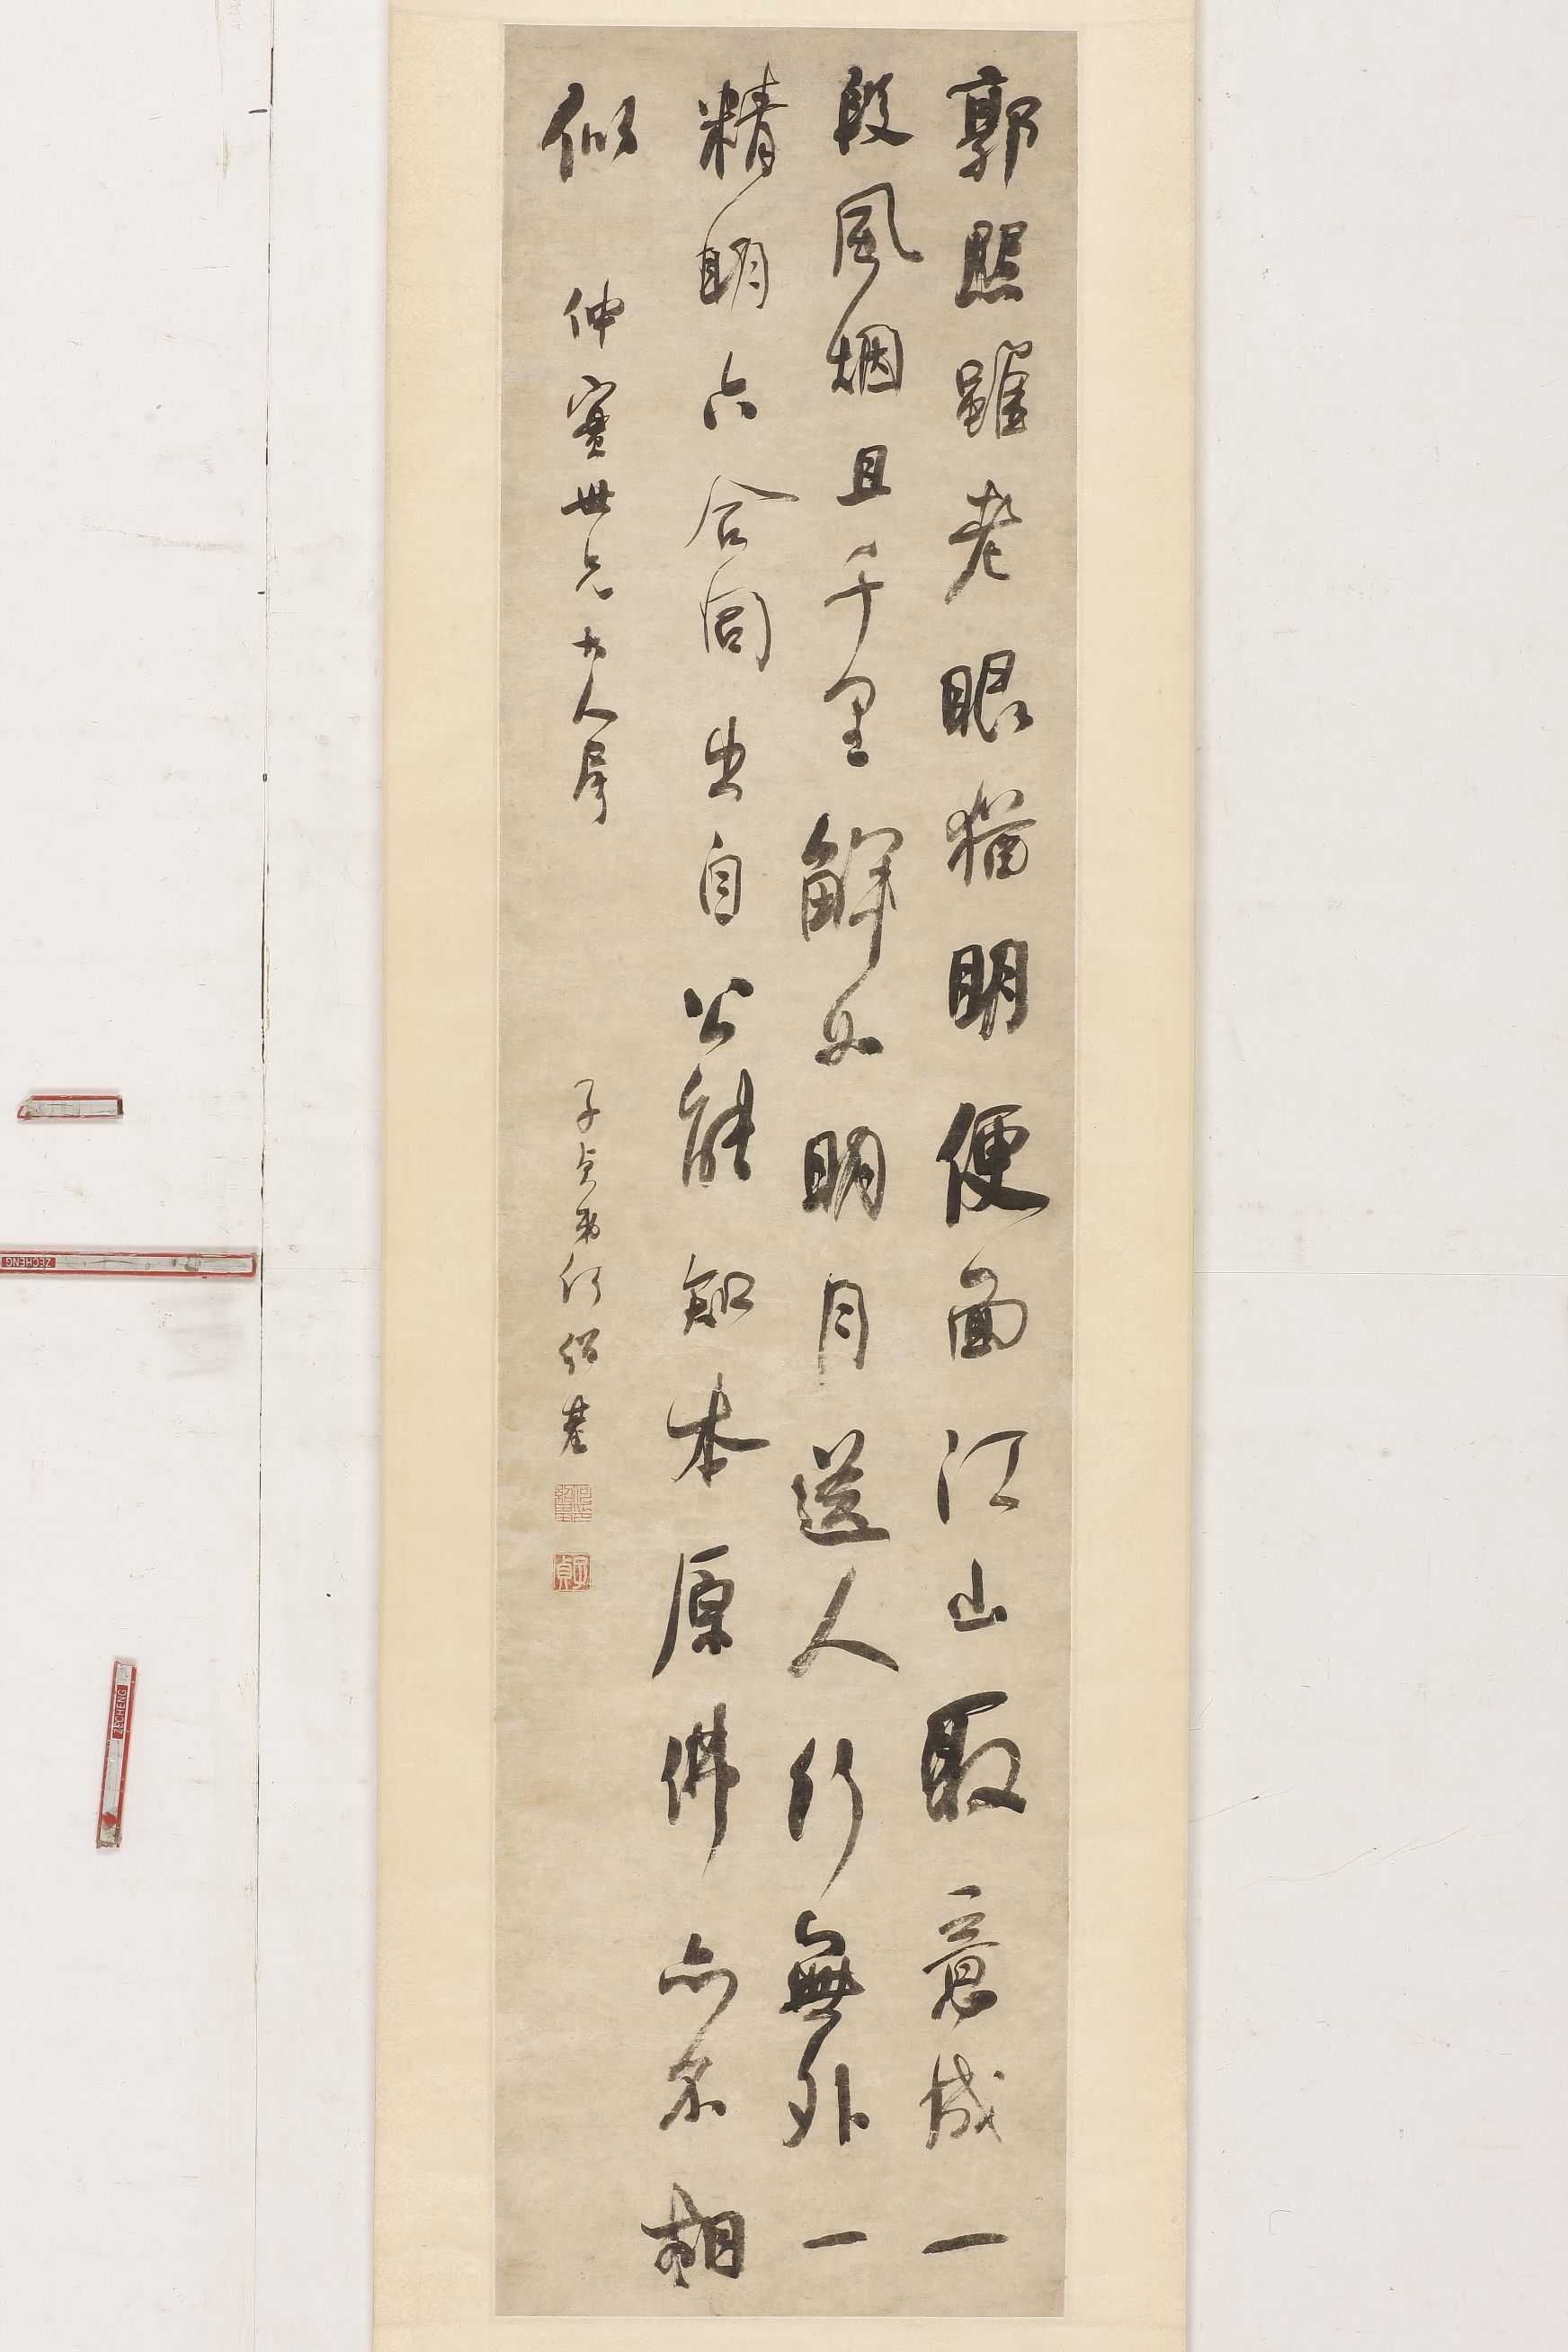 郭熙雖老眼猶明便面江山取意成一
段風烟且千里解如明月送人行無外一
精明六合同出自公能知本原佛亦不相
似 仲實世兄大人屬
子貞弟何紹基
子貞
ZECHENG
ZECHENG